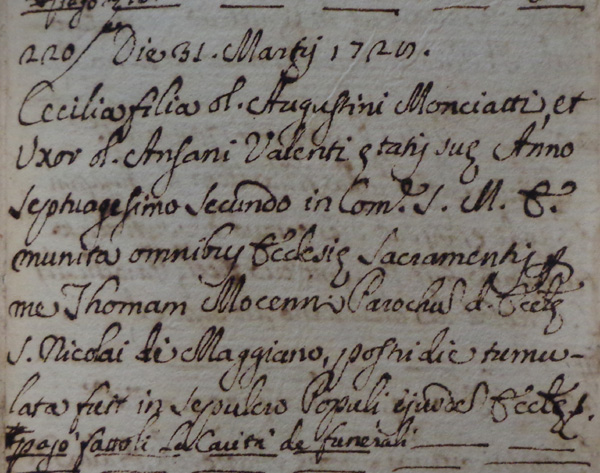 220 Die 31. Martij 172
Cecilia filia ol. Augustini Monciatti, et
Uxor ol. Ansani Valenti ętatis suę Anno
septuagesimo secundo in Com.e S. M. E.
munita omnibus Ecclesię Sacramentis p
me Thomam Mocenni Parochus d. Eccle
S. Nicolai di Maggiano, postridie tumu-
lata fuit in sepulcro Populi ejusdē Eccle.
pago la Carità de funerali